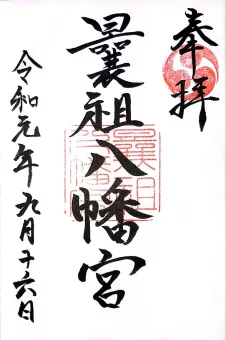 奉拝
曩祖八幡宮
令和元年九月十六日
曩祖八幡宮